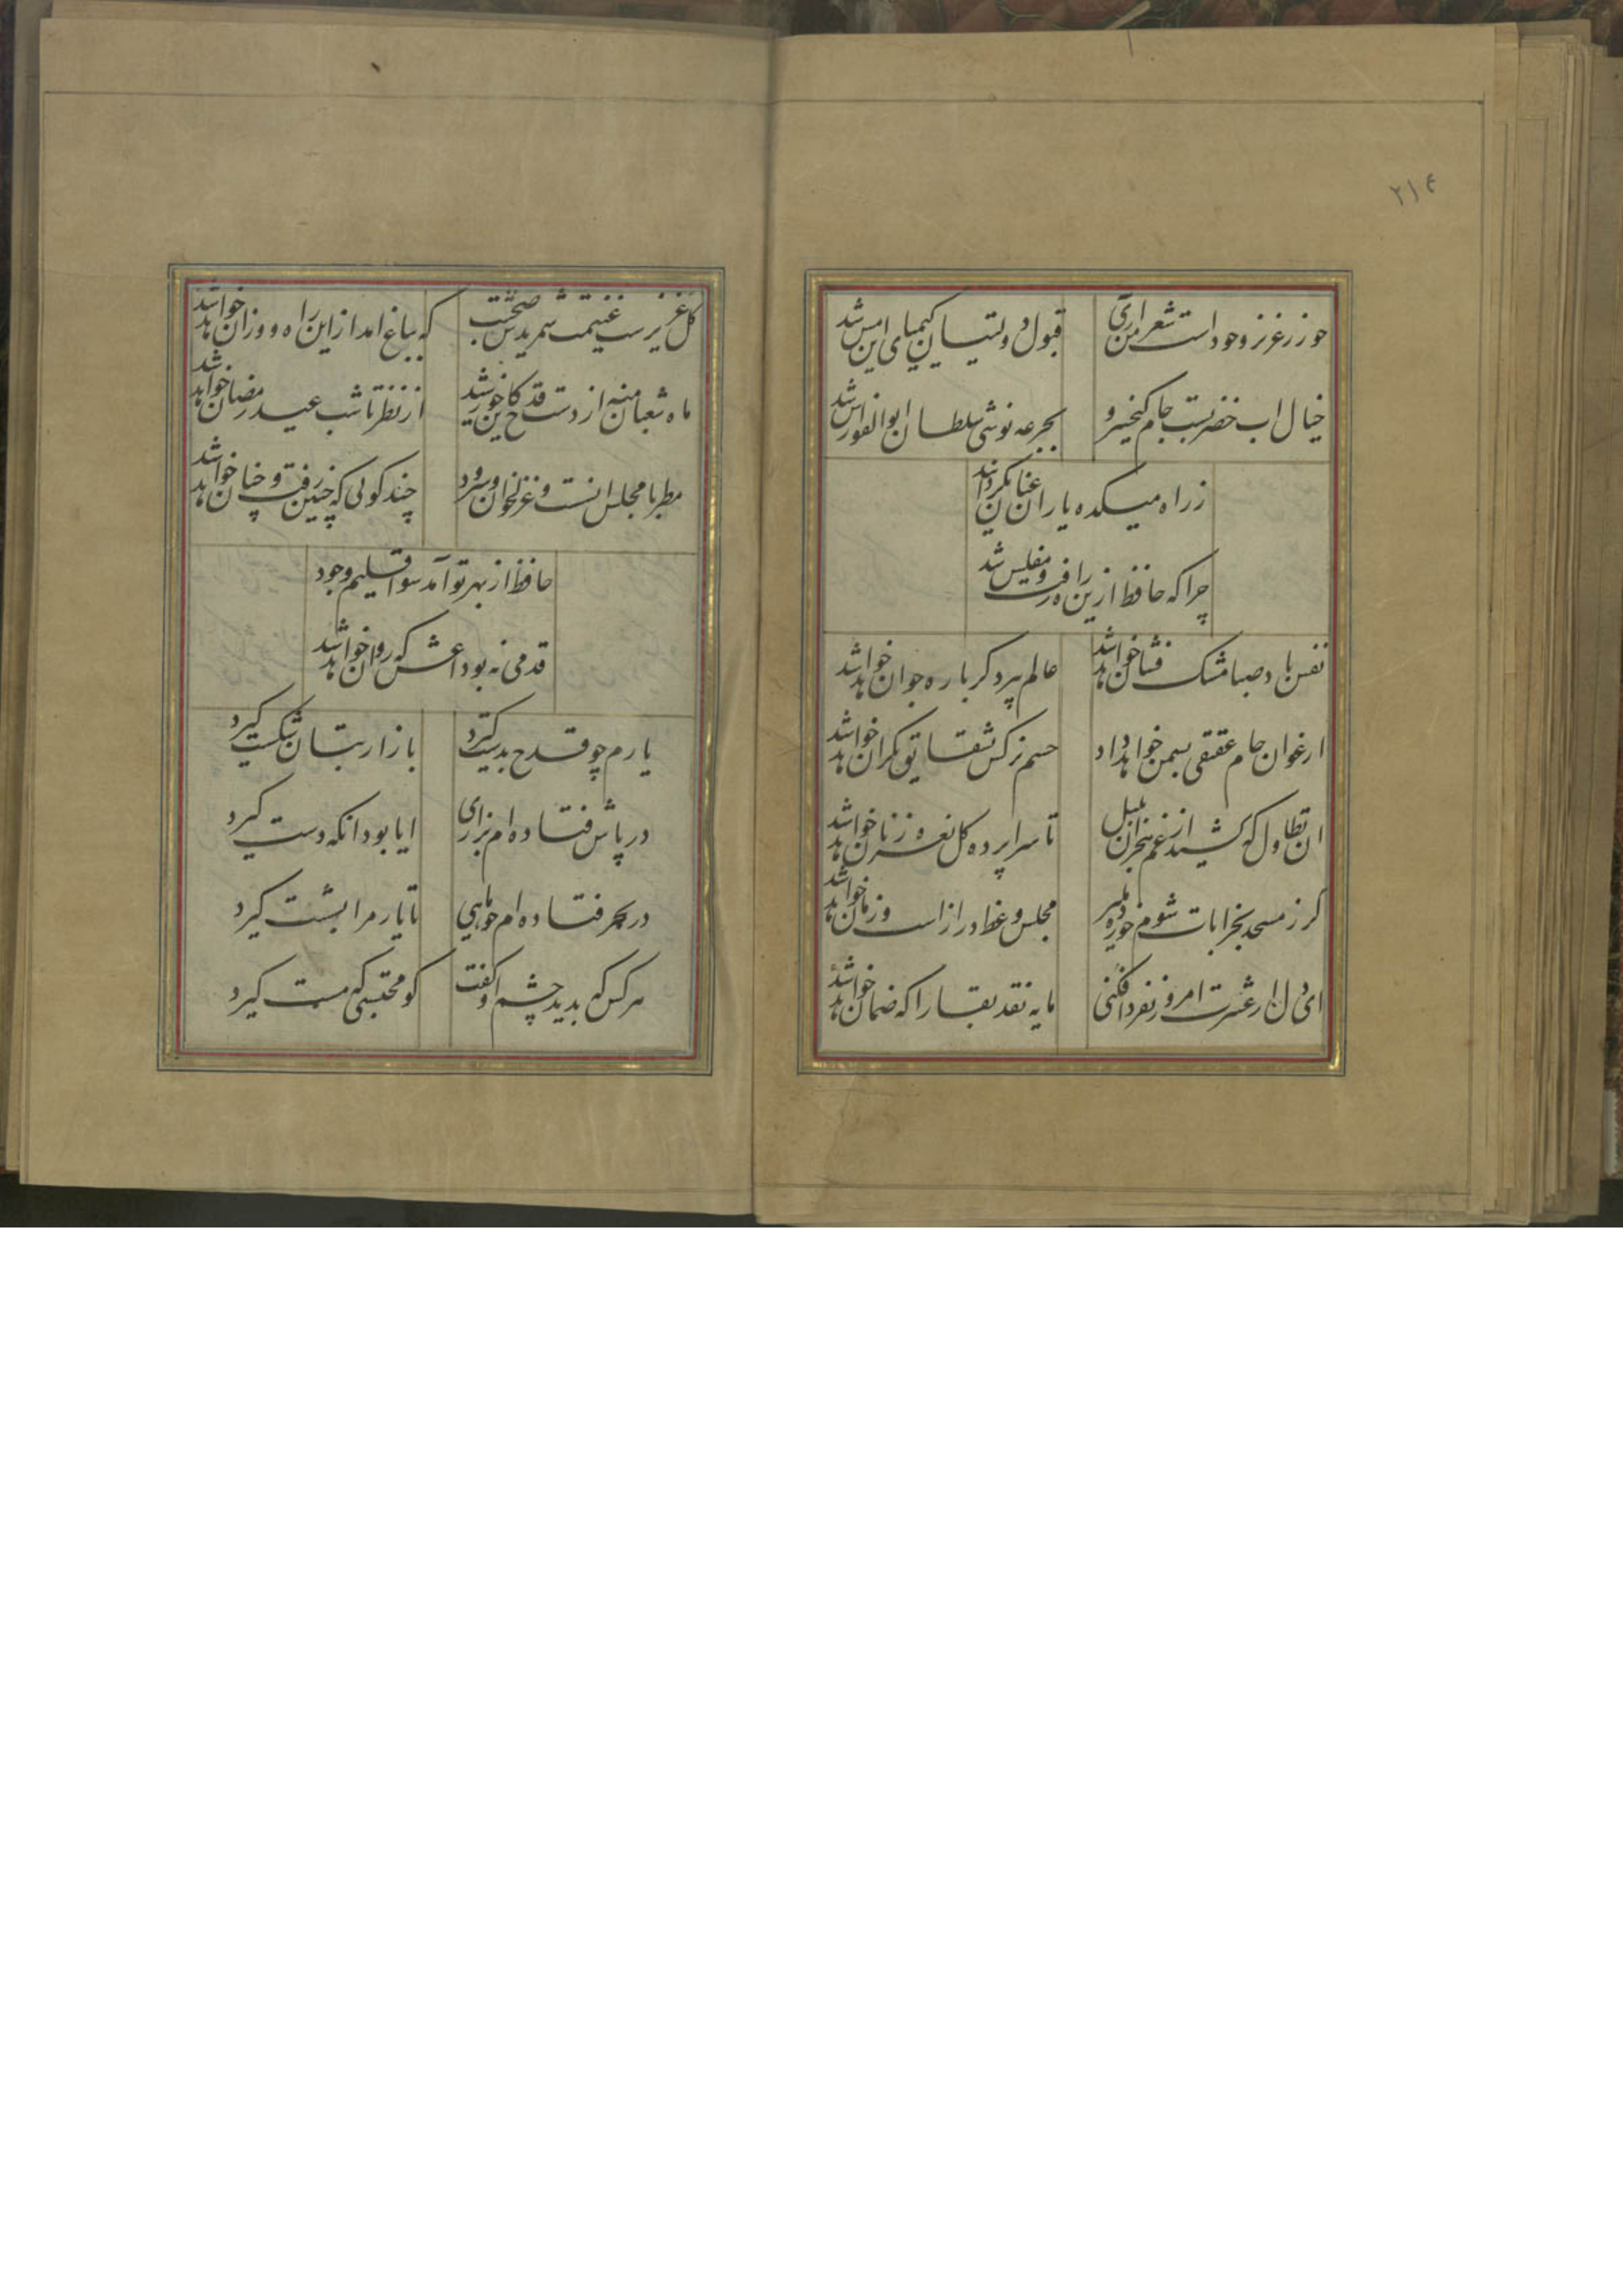 ۲۱۴
چو زر عزیز وجود است شعر من آری
قبول دولتیان کیمیای این مس شد
خیال اب خضر بست جام کیخسرو
بجرعه نوشی سلطان ابوالفوارس شد
ز راه میکده یاران عنان بگردانید
چرا که حافظ ازین راه رفت و مفلس شد
نفس باد صبا مشک فشان خواهد شد
عالم پیر دگر باره جوان خواهد شد
ارغوان جام عقیقی بسمن خواهد داد
چشم نرگس بشقایق نگران خواهد شد
ان تطاول که کشید از غم هجران بلبل
تا سراپرده گل نعره زنان خواهد شد
گر ز مسجد بخرابات شوم خورده مگیر
مجلس وعظ درازاست و زمان خواهد شد
ای دل ار عشرت امروز بفردا فکنی
مایه نقد بقا را که ضمان خواهد شد
گل عزیزست غنیمت شمریدش صحبت
که بباغ امد ازاین راه و ازان خواهد شد
ماه شعبان منه از دست قدح کاین خورشید
از نظر تا شب عید رمضان خواهد شد
مطربا مجلس انست و غزل خوان و سرود
چند گوئی که چنین رفت و چنان خواهد شد
حافظ از بهر تو آمد سوی اقلیم وجود
قدمی نه بوداعش که روان خواهد شد
یارم چو قدح بدست گیرد
بازار بتان شکست گیرد
در پاش فتاده ام بزاری
ایا بود انکه دست گیرد
در بحر فتاده ام چو ماهی
تا یار مرا بشست گیرد
هر کس که بدید چشم او گفت
کو محتسبی که مست گیرد